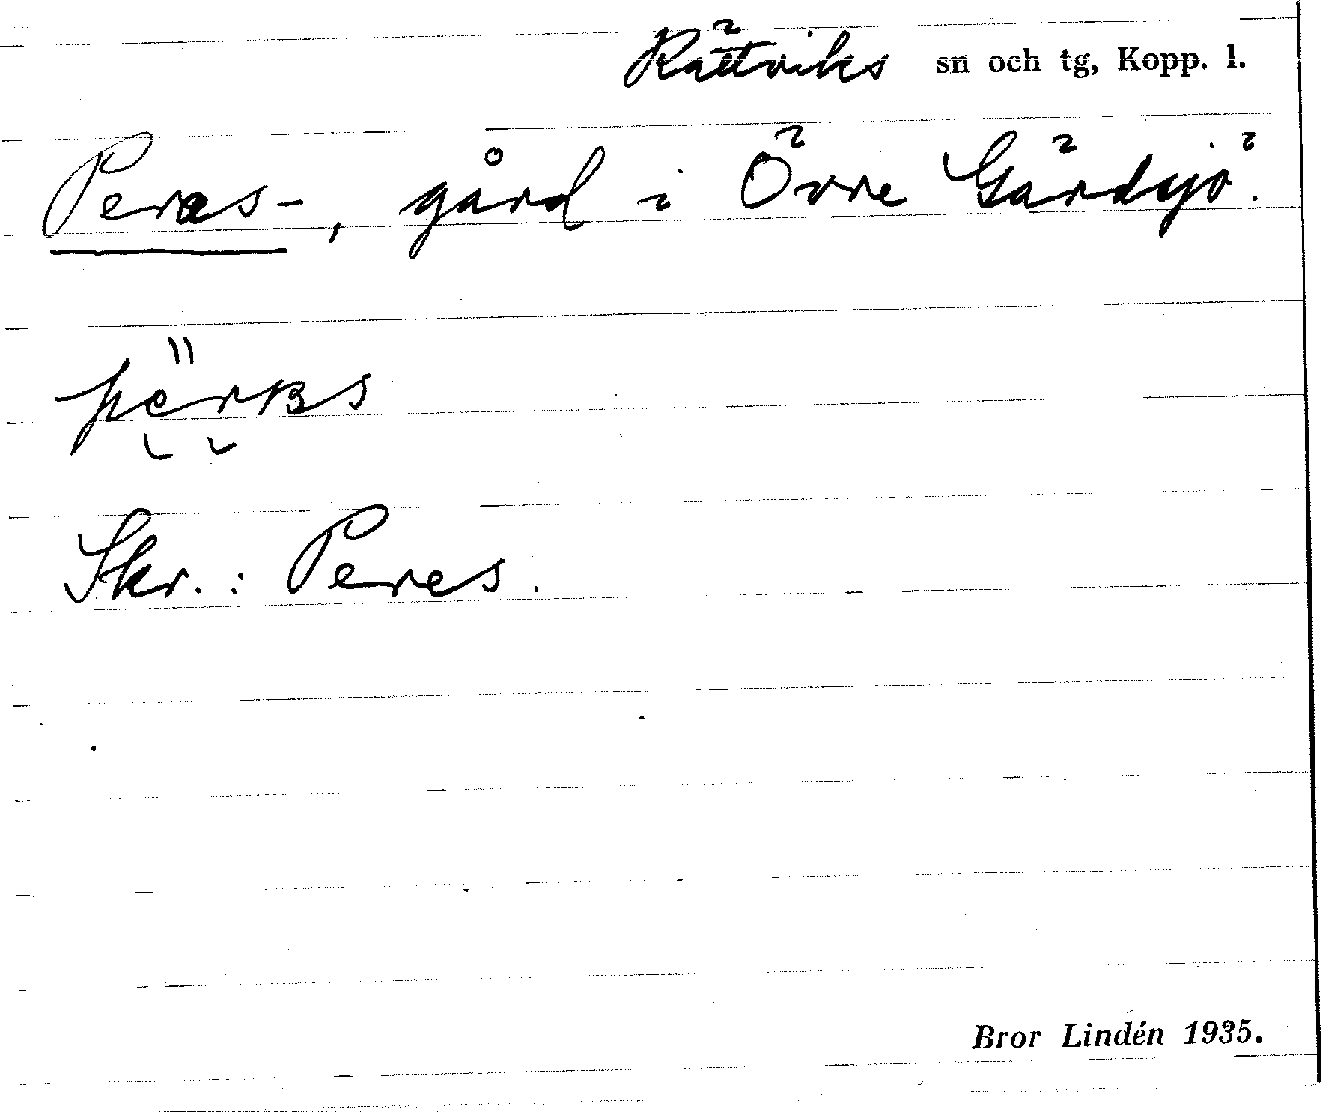 Rättviks sn och tg, Kopp. l.
Peres-, gård i Övre Gärdsjö.
Skr.: Peres.
Bror Lindén 1935.